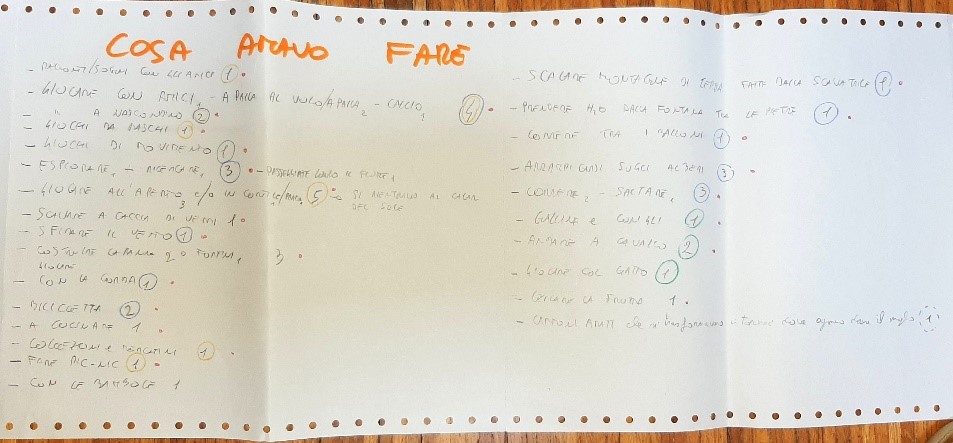 COSA AMAVO FARE
- RACCONTI/SOGNI CON GLI AMICI 1
- GIOCARE CON AMICI, - A PALLA AL VOLO/A PALLA - CALCIO 4
- " A NASCONDINO 2
- GIOCHI DA MASCHI 1
- GIOCHI DI MOVIMENTO 1
- ESPLORARE, - RICERCARE, 3 - LUNGO IL FIUME,
- GIOCARE ALL'APERTO c/o IN CORTILE 5 SI METTEVA AL CALAR DEL SOLE
- SCAVARE A CACCIA DI VERMI 1
- SFIDARE IL VENTO 1
- COSTRUIRE CAPANNA 2 O FORTINI, 3
GIOCARE
- CON LA CORDA 1
- BICICLETTA 2
- A CUCINARE 1
- COLLEZIONI E 1
- FARE PIC-NIC 1
- CON LE BAMBOLE 1
- SCALARE MONTAGNE DI TERRA FATTE DALLA SCAVATRICE 1
- PRENDERE H2O DALLA FONTANA TRA LE PIETRE 1
- CORRERE TRA I BALLONI 1
- ARRAMPICARSI SUGLI ALBERI 3
- CORRERE, - SALTARE, 3
- GALLINE E CONIGLI 1
- ANDARE A CAVALLO 2
- GIOCARE COL GATTO 1
- LA FRUTTA 1
- CARTONI ANIMATI che si trasformavano dove ognuno dava il meglio 1